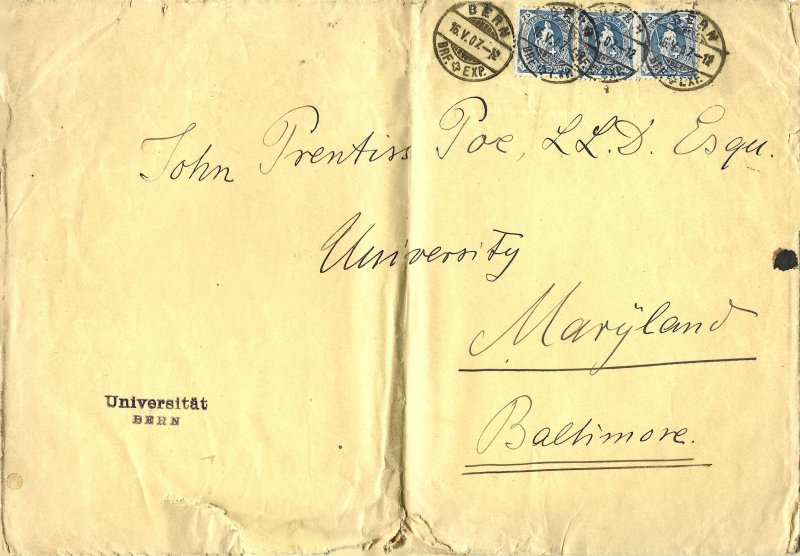 BERN
16.V.07.-12
BRF. EXP.
John Prentiss Poe, LL.D. Esqu.
University
Marÿland
Baltimore.
Universität
BERN